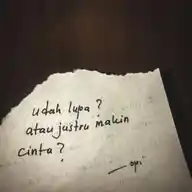 udah lupa ?
atau justru makin
cinta ?
— opi